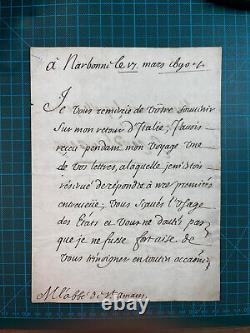 à Narbonne le 17. mars 1690.
Je vous remercie de vôtre souvenir
sur mon retour d'Italie; J'avois
receu pendant mon voyage une
de vos lettres, a laquelle je m'étois
réservé de répondre à nôtre première
entreveüe; vous sçavés l'usage
des Etats et vous ne doutés pas
que je ne fusse fort aise de
vous témoigner en toutes occasions
M. l'abbé de St amans